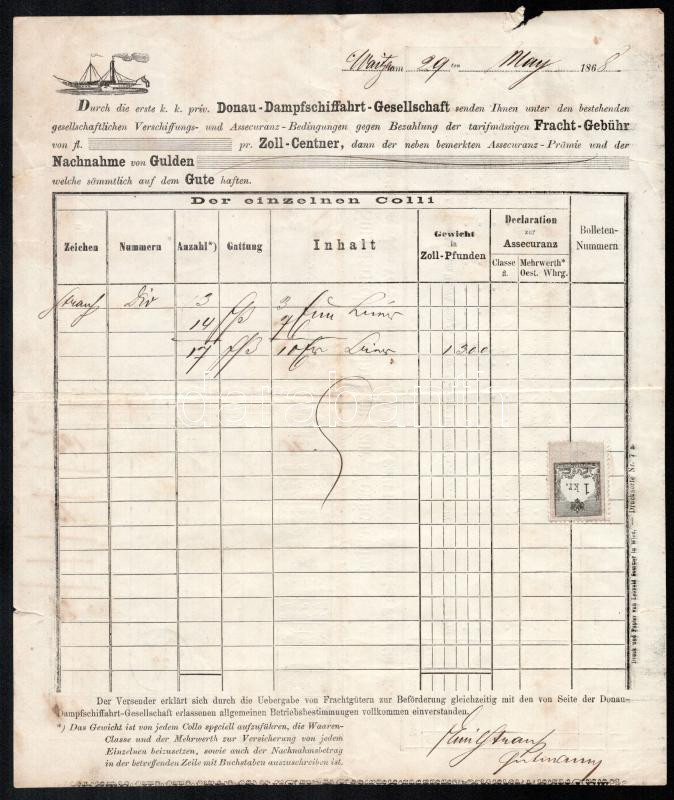 am 29 ten May 1868
Durch die erste k. k. priv. Donau-Dampfschiffahrt-Gesellschaft senden Ihnen unter den bestehenden
gesellschaftlichen Verschiffungs- und Assecuranz-Bedingungen gegen Bezahlung der tarifmässigen Fracht-Gebühr
von fl. pr. Zoll-Centner, dann der neben bemerkten Assecuranz-Prämie und der
Nachnahme von Gulden
welche sämmtlich auf dem Gute haften.
Der einzelnen Colli
Zeichen Nummern Anzahl*) Gattung Inhalt Gewicht in Zoll-Pfunden Declaration zur Assecuranz Bolleten-Nummern
Classe fl. Mehrwerth* Oest. Whrg.
Div 3
14
17 1300
1 kr.
Druck und Papier von Leopold Sommer in Wien. — Drucksorte Nr. 7 a.
Der Versender erklärt sich durch die Uebergabe von Frachtgütern zur Beförderung gleichzeitig mit den von Seite der Donau-
Dampfschiffahrt-Gesellschaft erlassenen allgemeinen Betriebsbestimmungen vollkommen einverstanden.
*) Das Gewicht ist von jedem Collo speciell aufzuführen, die Waaren-
Classe und der Mehrwerth zur Versicherung von jedem
Einzelnen beizusetzen, sowie auch der Nachnahmsbetrag
in der betreffenden Zeile mit Buchstaben auszuschreiben ist.